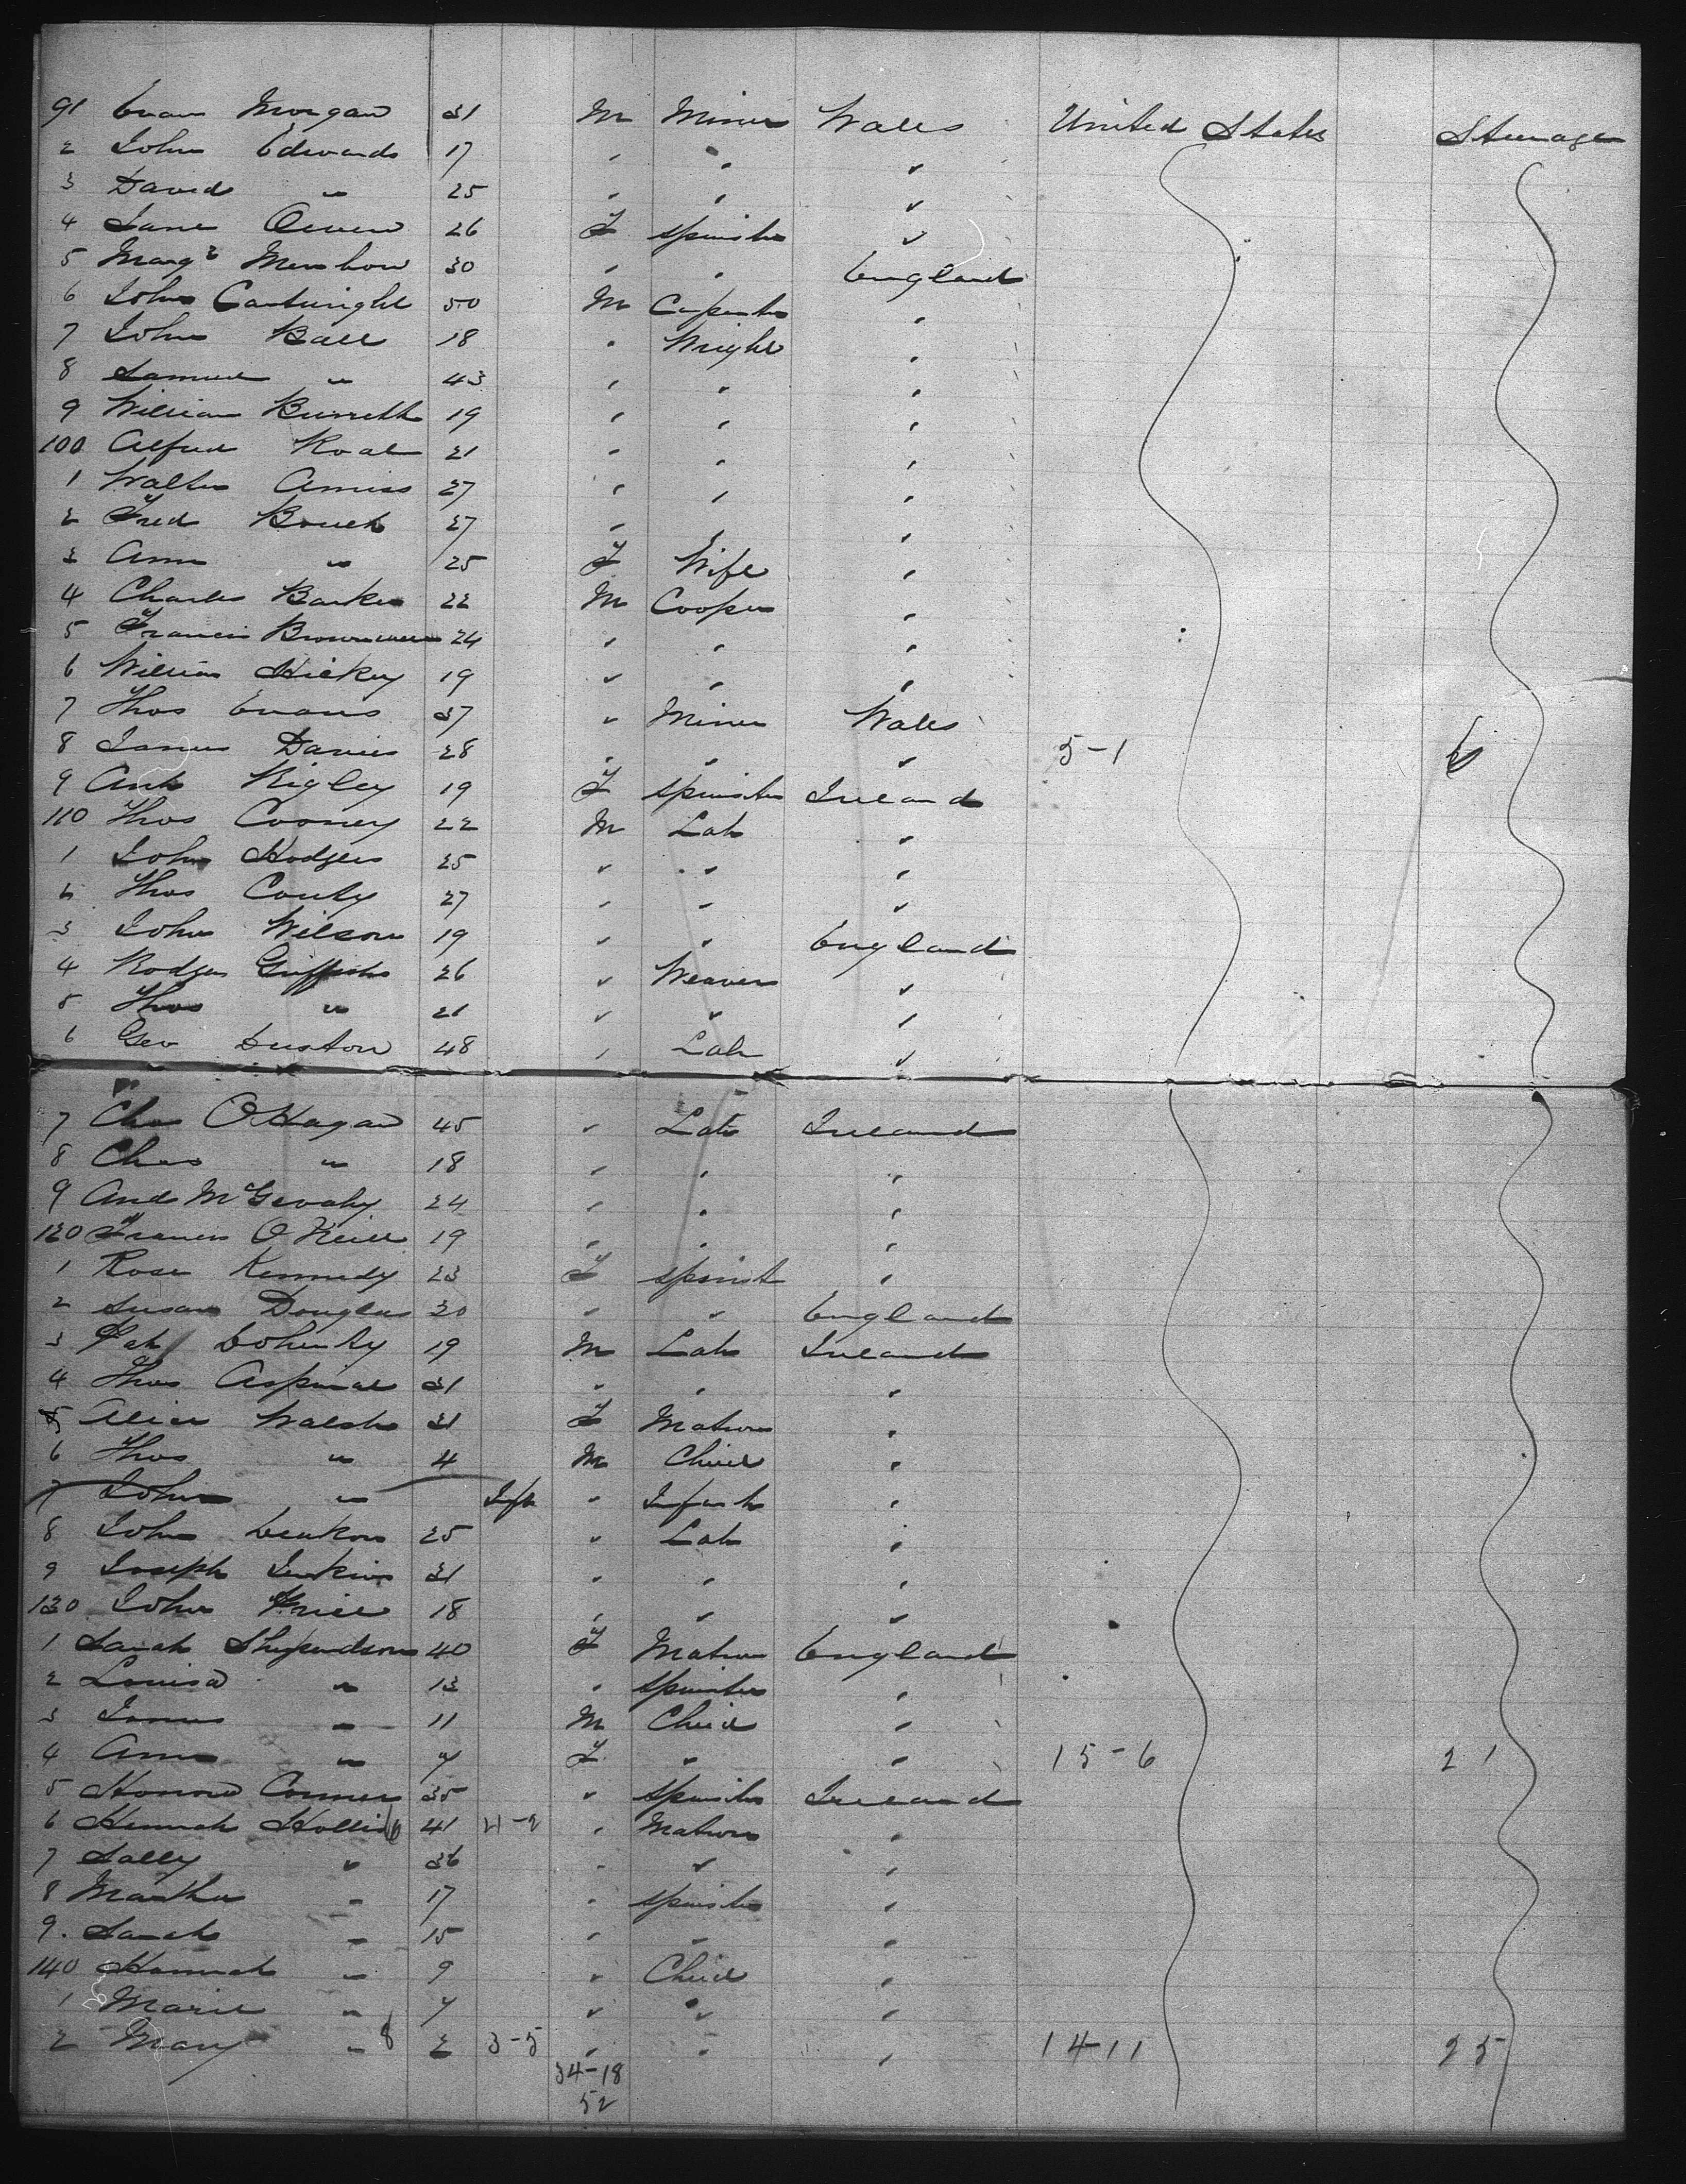 91 Evan Morgan 31 M Miner Wales United States Steerage
2 John Edwards 17 " " "
3 David " 25 " " "
4 Jane Owen 26 F Spinster "
5 Margt 30 " " England
6 John Cartwright 50 M Carpenter "
7 John Ball 18 " Wright "
8 Samuel " 43 " " "
9 William Burrett 19 " " "
100 Alfred Roal 21 " " "
1 Walter Amiss 27 " " "
2 Fred Bouch 27 " " "
3 Ann " 25 F Wife "
4 Charles Barker 22 M Cooper "
5 Francis 24 " " "
6 William Hickey 19 " " "
7 Thos Evans 37 " Miner Wales
8 James Davies 28 " " " 5-1 6
9 Ann Rigley 19 F Spinster Ireland
110 Thos Cooney 22 M Lab "
1 John Hodgers 25 " " "
2 Thos Conty 27 " " "
3 John Wilson 19 " " England
4 Rodger Griffiths 26 " Weaver "
5 Thos " 21 " " "
6 Geo Duston 48 " Lab "
7 Chas O'Hagan 45 " Lab Ireland
8 Chas " 18 " " "
9 And 24 " " "
120 Francis O'Neill 19 " " "
1 Rose Kennedy 23 F Spinst "
2 Susan Douglas 30 " " England
3 Pat Doherty 19 M Lab Ireland
4 Thos Aspinal 31 " " "
5 Alice Walsh 31 F Matron "
6 Thos " 4 M Child "
7 John " Inft " Infant "
8 John Deakon 25 " Lab "
9 Joseph Jenkins 31 " " "
130 John Price 18 " " "
1 Sarah Shependson 40 F Matron England
2 Louisa " 13 " Spinster "
3 James " 11 M Child "
4 Ann " 7 F " " 15-6 21
5 Honora Connor 35 " Spinster Ireland
6 Hannah Hollis 41 21-2 " Matron "
7 Sally " 36 " " "
8 Martha " 17 " Spinster "
9. Sarah " 15 " " "
140 Hannah " 9 " Child "
1 Marie " 7 " " "
2 Mary " 8 2 3-5 " " " 14-11 25
34-18
52